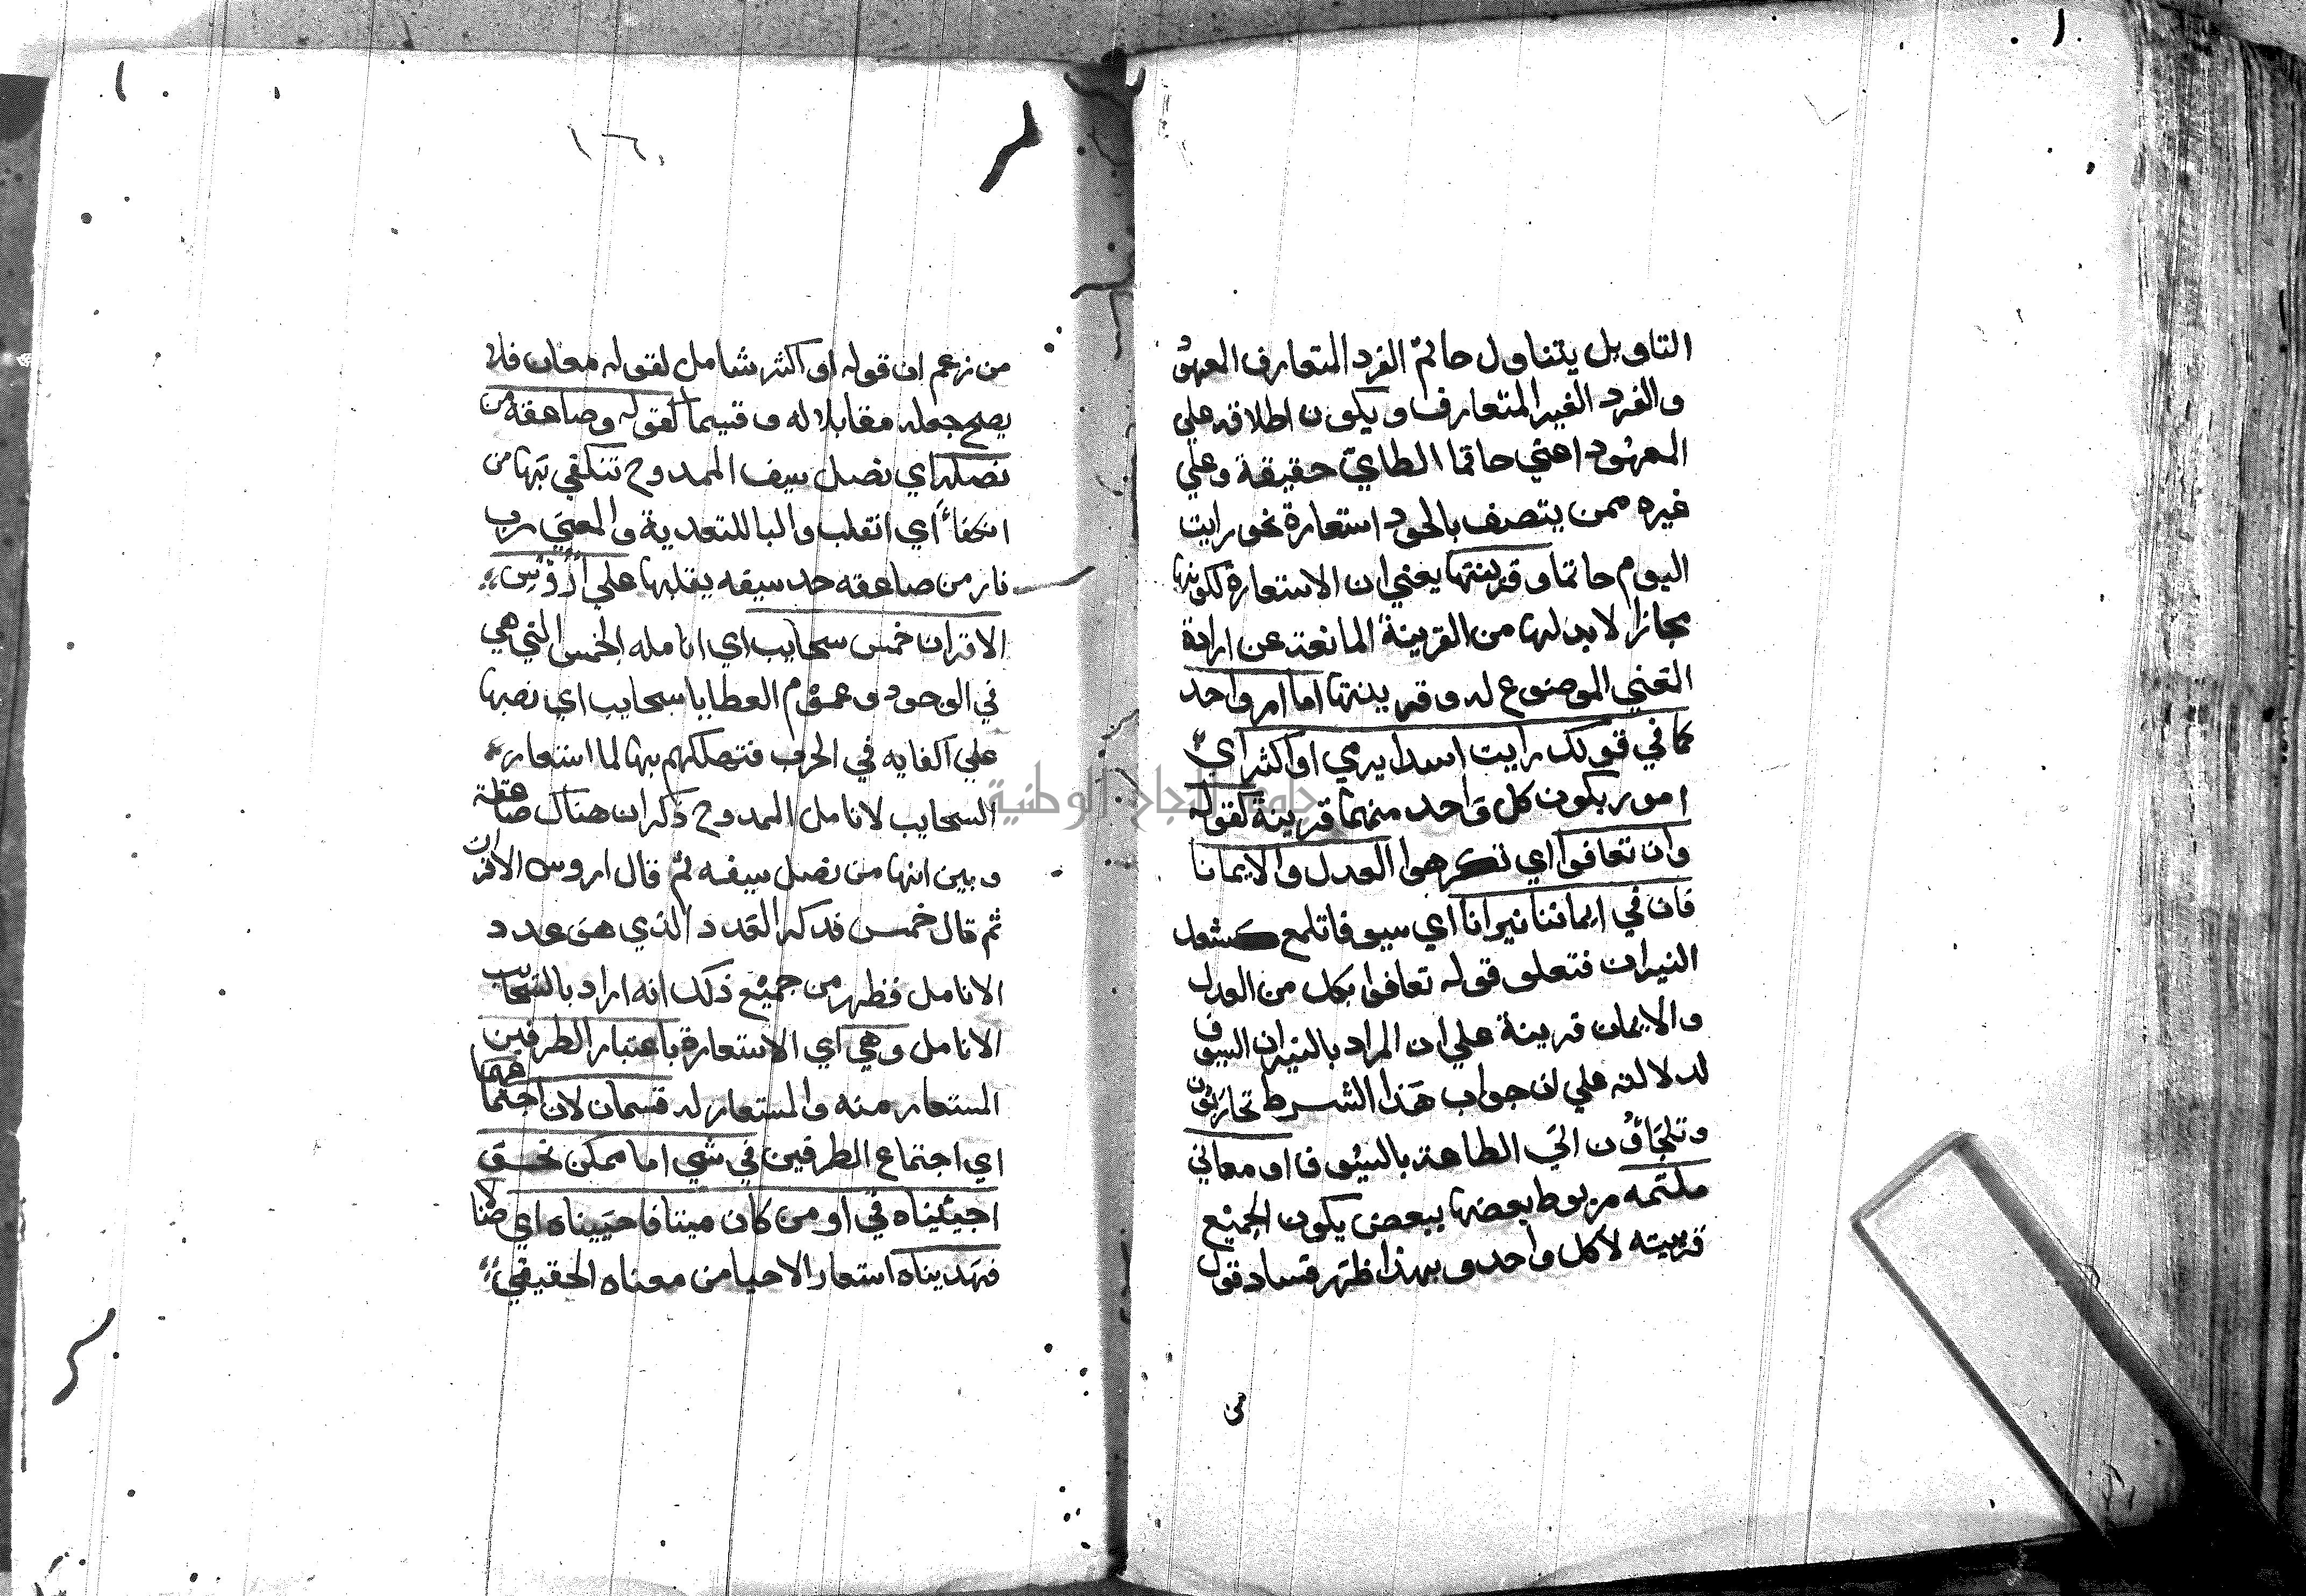 التاويل يتناول حاتم الفرد المتعارف المعهود
والفرد الغير المتعارف ويكون اطلاقه علي
المعهود اعني حاتما الطايّ حقيقة وعلي
غيره ممن يتصف بالجود استعارة نحو رايت
اليوم حاتما وقرينتها يعني ان الاستعارة لكونها
مجازا لا بد لها من القرينة المانعة عن ارادة
المعني الموضوع له وقرينتها اما امر واحد
كما في قولك رايت اسدا يرمي او اكثر اي
امور يكون كل واحد منهما قرينة كقوله
وان تعافوا اي تكرهوا العدل والايمانا
فان في ايماننا نيرانا اي سيوفا تلمع كشعل
النيران فتعلق قوله تعافوا بكل من العدل
والايمان قرينة علي ان المراد بالنيران السيوف
لدلالته علي ان جواب هذا الشرط تحاربون
وتلجاؤن الي الطاعة بالسيوف او معاني
ملتئمه مربوط بعضها ببعض يكون الجميع
قرينته لا كل واحد وبهذا ظهر فساد قول
من
من زعم ان قوله او اكثر شامل لقوله معان فلا
يصح جعله مقابلا له وقسيما لقوله وصاعقة من
نصله اي نصل سيف الممدوح تنكفي بها من
انكفاء اي انقلب والبا للتعدية والمعني رب
نار من صاعقه حد سيفه يقلبها علي أرؤس
الاقران خمس سحايب اي انامله الخمس التي هي
في الوجود وعموم العطايا سحايب اي نصبها
علي اكفايه في الحرب فتهلكهم بها لما استعار
السحايب لانامل الممدوح ذكر ان هناك صاعقة
وبين انها من نصل سيفه ثم قال اروس الاقران
ثم قال خمس فذكر العدد الذي هو عدد
الانامل فظهر من جميع ذلك انه اراد بالسحايب
الانامل وهي اي الاستعارة باعتبار الطرفين
المستعار منه والمستعار له قسمان لان اجتماعهما
اي اجتماع الطرفين في شي اما ممكن نحو
احييناه في او من كان ميتا فاحييناه اي ضالا
فهديناه استعار الاحيا من معناه الحقيقي
جامعة النجاح الوطنية